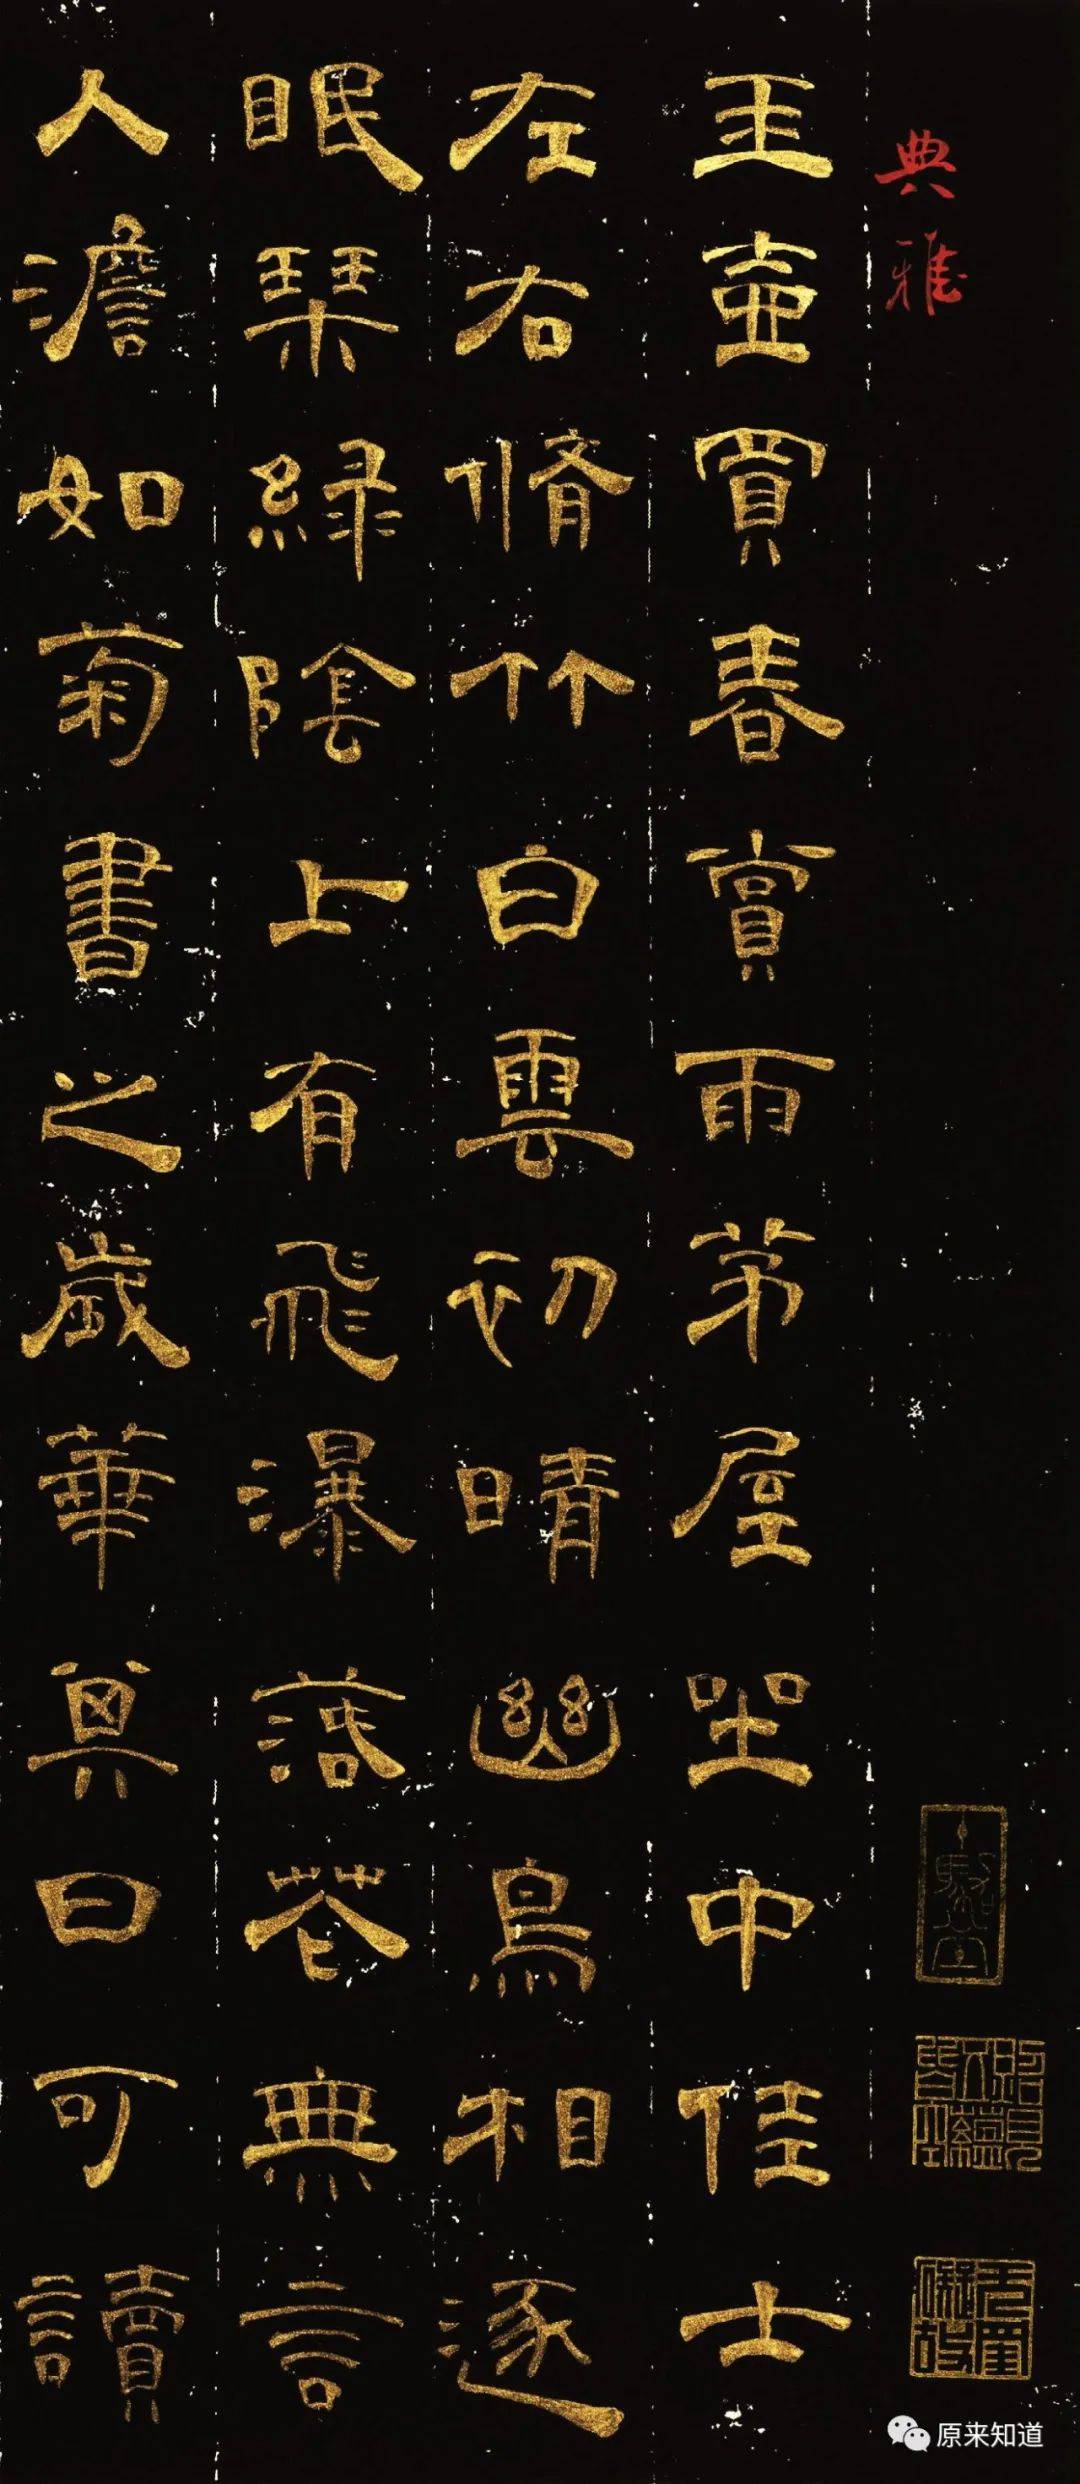 典雅
玉壺買春賞雨茅屋坐中佳士
左右脩竹白雲初晴幽鳥相逐
眠琴綠陰上有飛瀑落花無言
人澹如菊書之歲華其曰可讀
原来知道